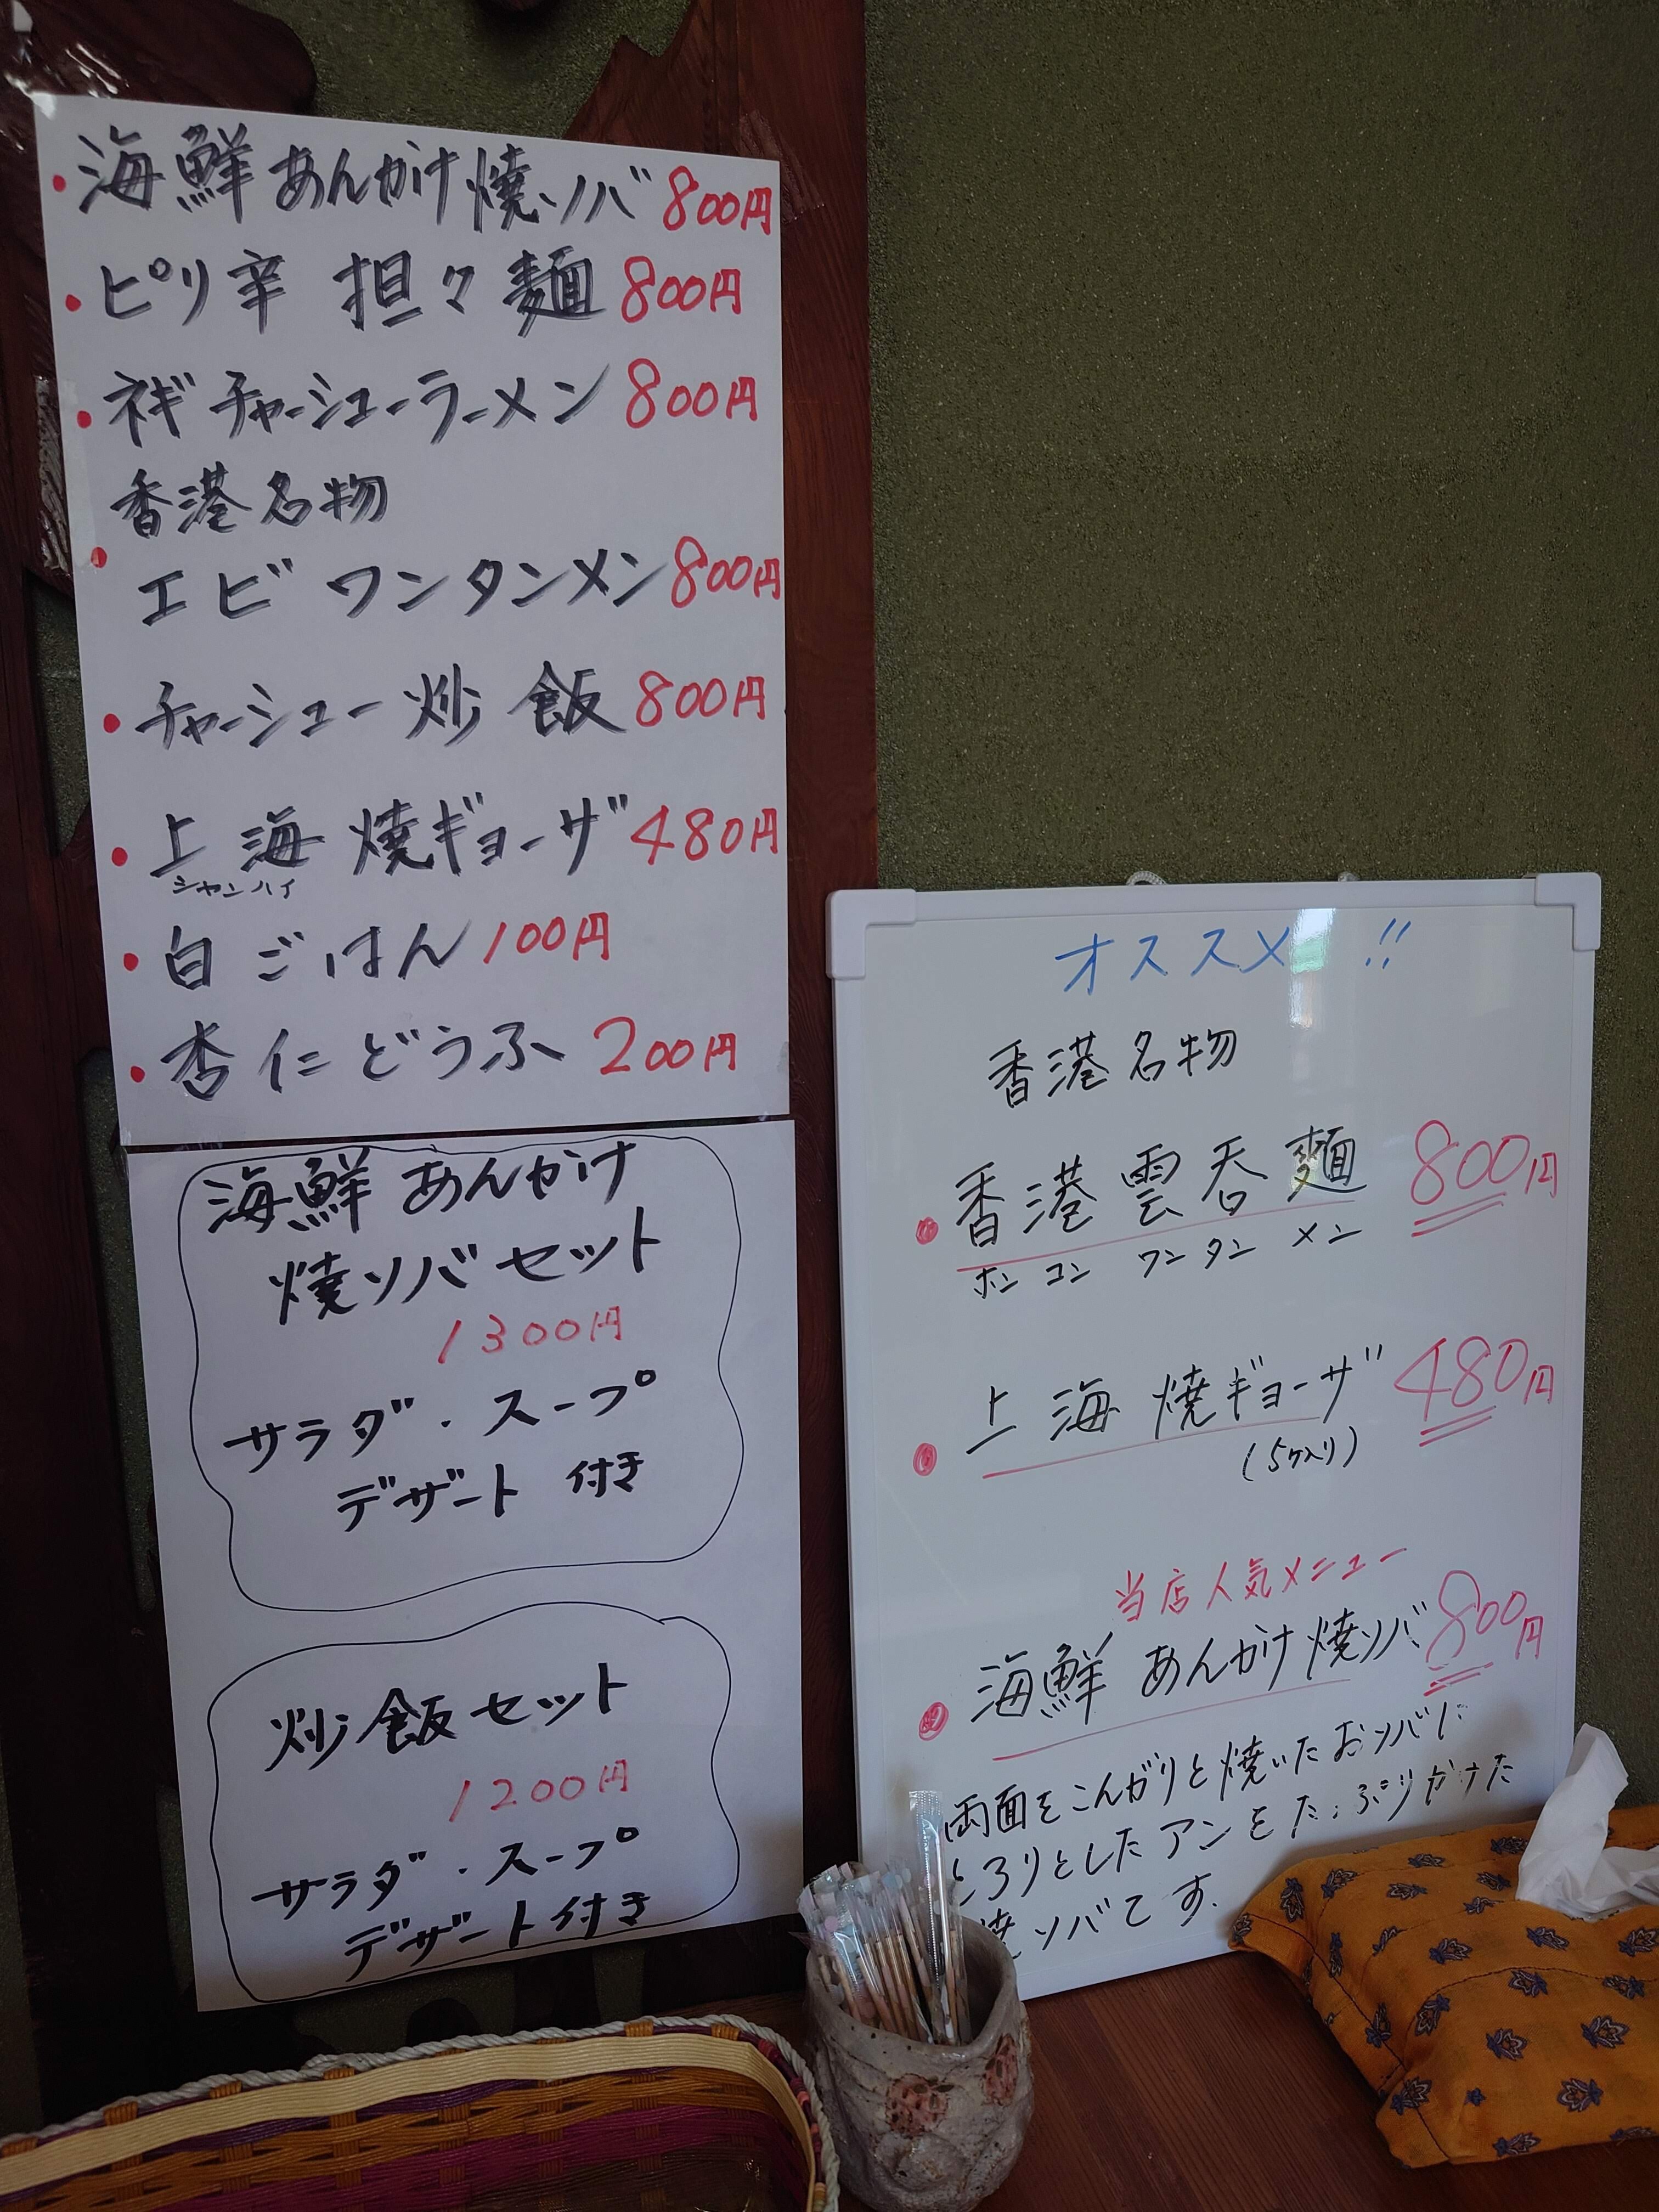 ・海鮮あんかけ焼ソバ 800円
・ピリ辛 担々麺 800円
・ネギチャーシューラーメン 800円
香港名物
・エビワンタンメン 800円
・チャーシュー炒飯 800円
・上海焼ギョーザ 480円
シャンハイ
・白ごはん 100円
・杏仁どうふ 200円
海鮮あんかけ
焼ソバセット
1300円
サラダ・スープ
デザート付き
炒飯セット
1200円
サラダ・スープ
デザート付き
オススメ!!
香港名物
・香港雲呑麺 800円
ホンコン ワンタン メン
・上海焼ギョーザ 480円
(5ケ入り)
当店人気メニュー
・海鮮あんかけ焼ソバ 800円
両面をこんがりと焼いたおソバに
とろりとしたアンをたっぷりかけた
焼ソバです.